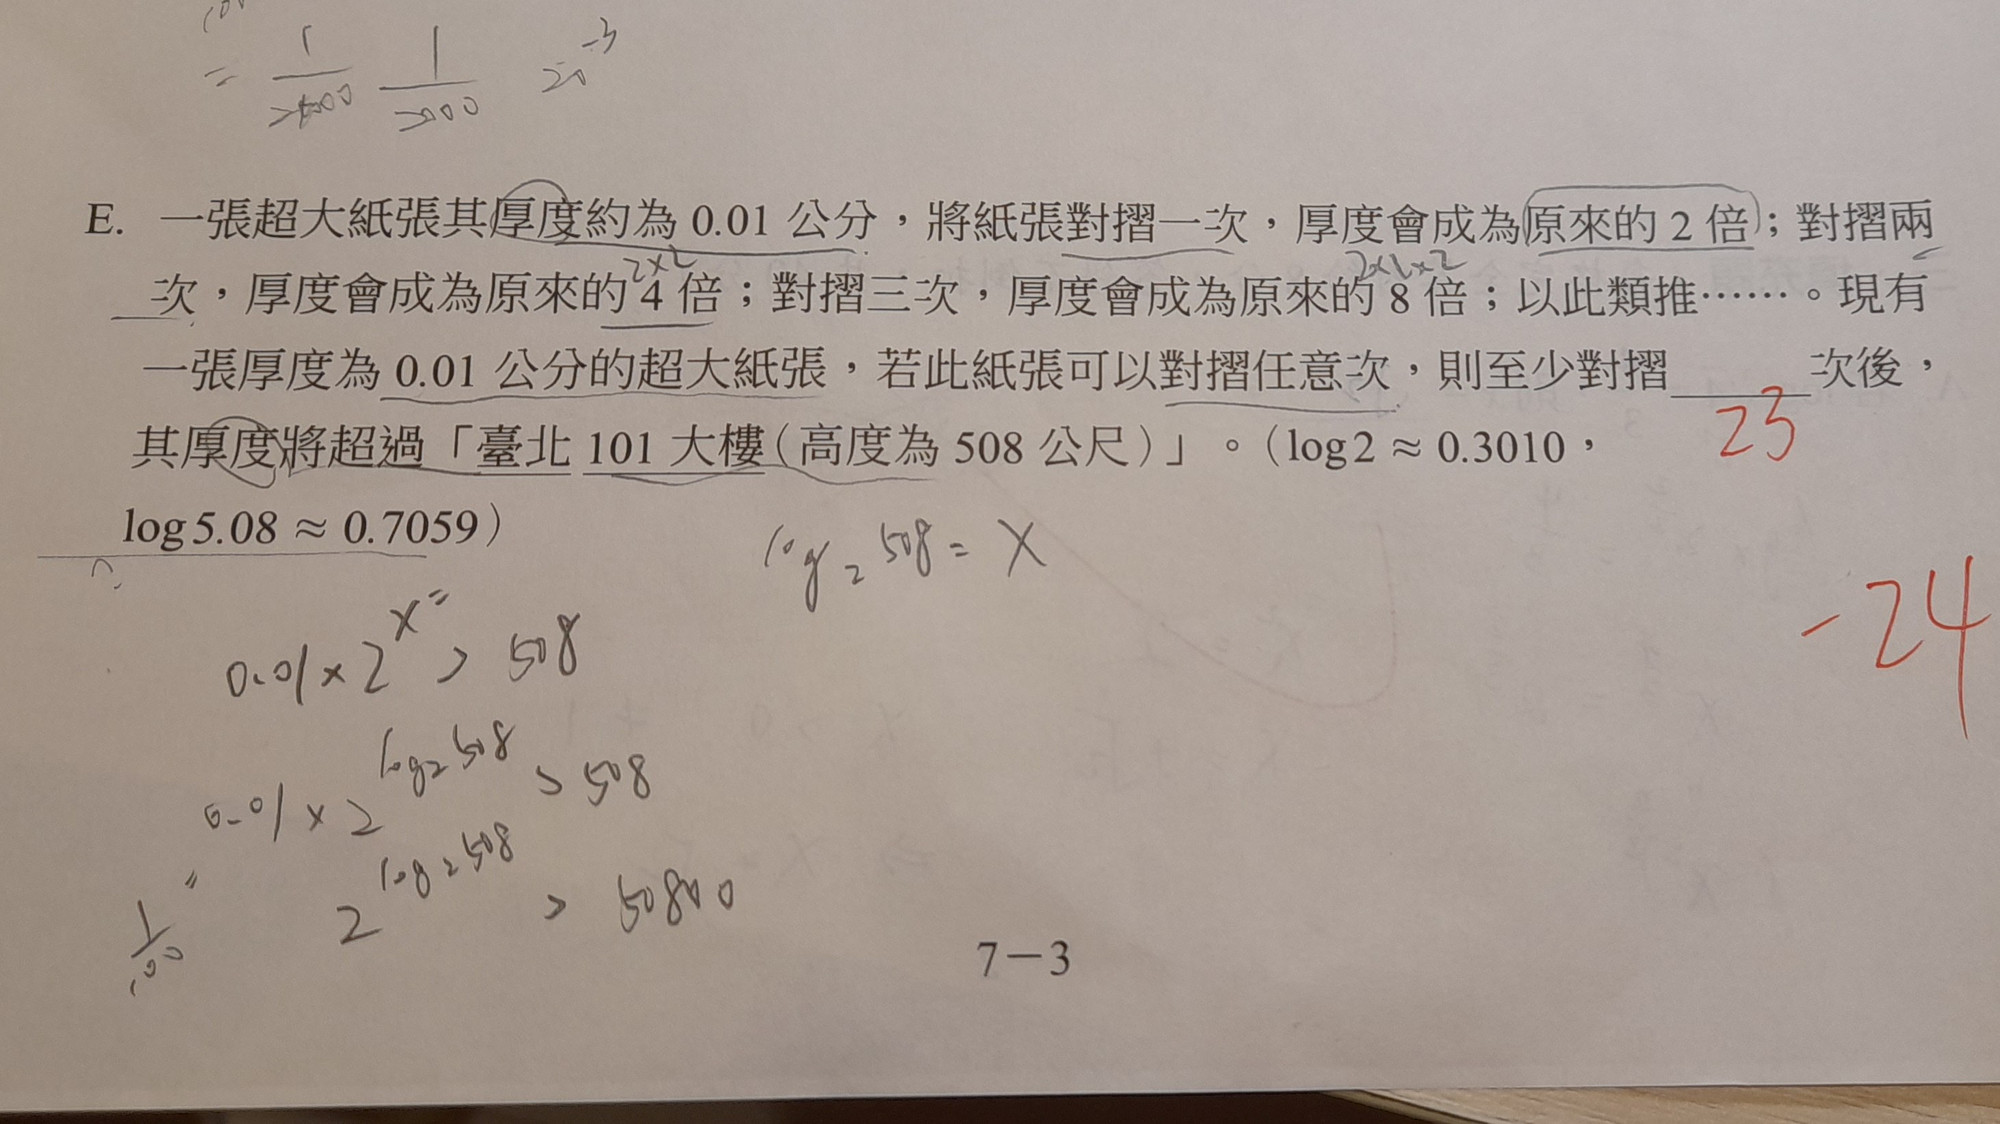 = 1/2000 1/2000 20^-3
E. 一張超大紙張其厚度約為 0.01 公分，將紙張對摺一次，厚度會成為原來的 2 倍；對摺兩
2×2 2×2×2
次，厚度會成為原來的 4 倍；對摺三次，厚度會成為原來的 8 倍；以此類推……。現有
一張厚度為 0.01 公分的超大紙張，若此紙張可以對摺任意次，則至少對摺 ＿＿＿ 次後，
23
其厚度將超過「臺北 101 大樓（高度為 508 公尺）」。（log2 ≈ 0.3010，
log5.08 ≈ 0.7059）
log₂508 = X
-24
0.01×2^x > 508
0.01×2^log₂508 > 508
2^log₂508 > 50800
1/100
7－3